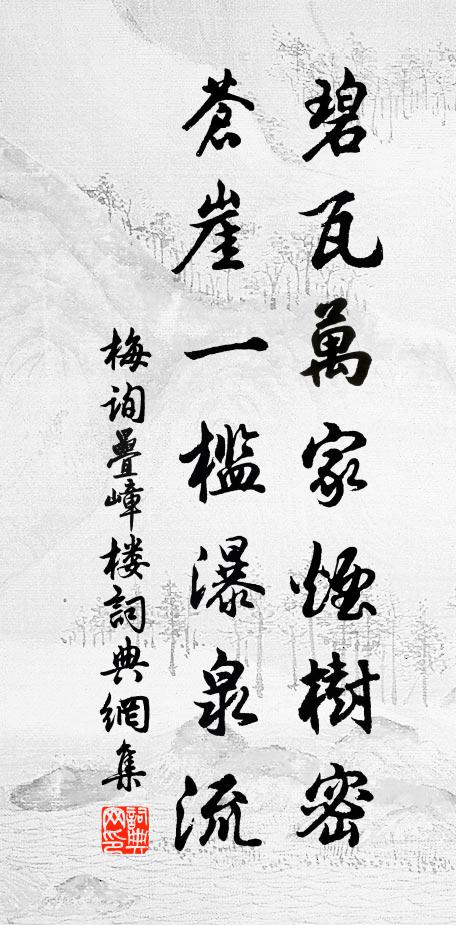 碧瓦萬家煙樹密
蒼崖一檻瀑泉流
梅询疊嶂楼詞典網集
詞典網印